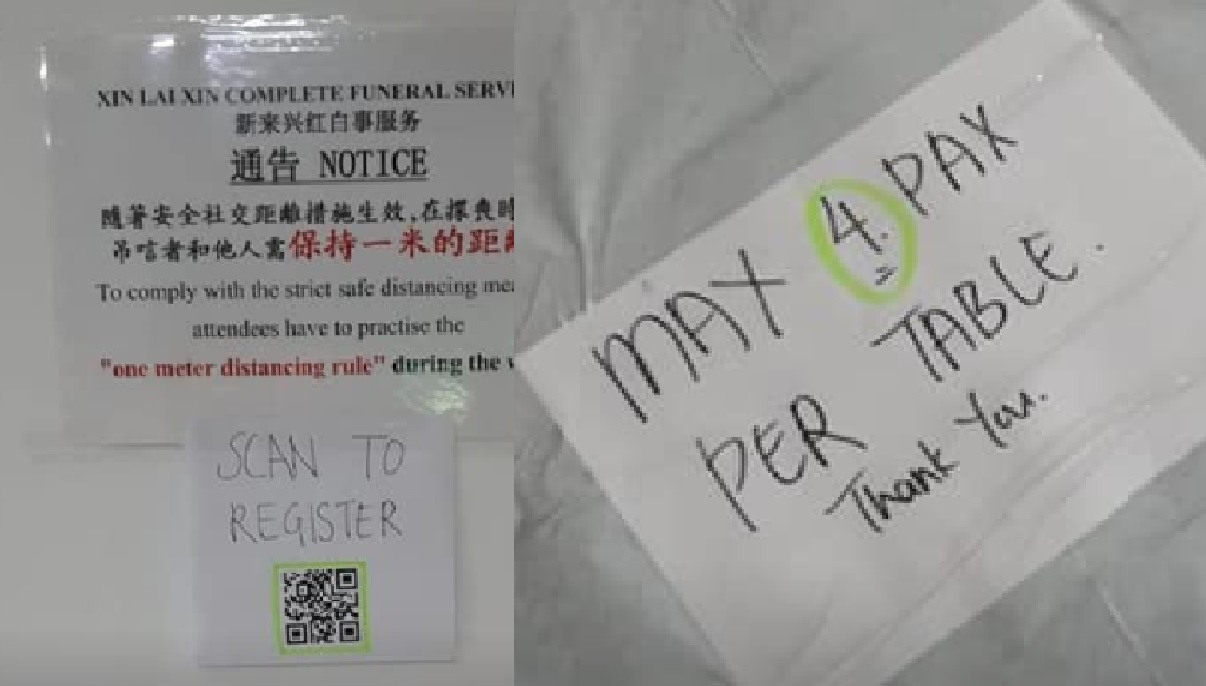 XIN LAI XIN COMPLETE FUNERAL SERVI
新来兴红白事服务
通告 NOTICE
隨著安全社交距離措施生效,在探喪時
吊唁者和他人需保持一米的距離
To comply with the strict safe distancing mea
attendees have to practise the
"one meter distancing rule" during the w
SCAN TO
REGISTER
MAX 4. PAX
PER TABLE.
Thank You.